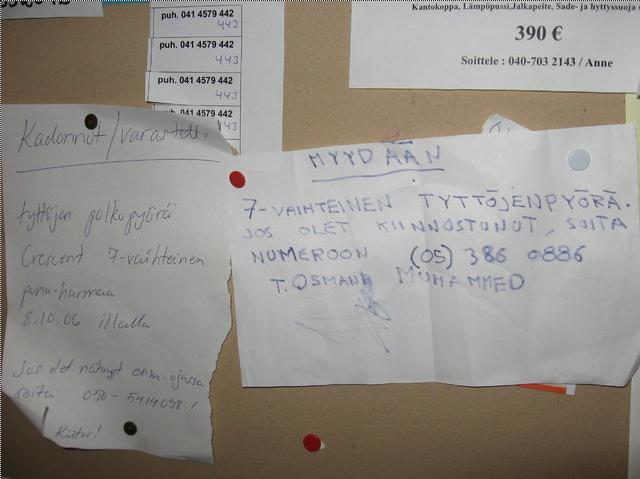 puh. 041 4579 442
443
puh. 041 4579 442
443
puh. 041 4579 442
443
puh. 041 4579 442
443
Kantokoppa, Lämpöpussi,Jalkapeite, Sade- ja hyttyssuoja
390 €
Soittele : 040-703 2143 / Anne
Kadonnut/varastettu
tyttöjan polkupyörä
Crescent 7-vaihteinen
puna-harmaa
8.10.06 illalla
Jos olet nähnyt esim. ojassa
soita 050-5414098!
Kiitos!
MYYDÄÄN
7-VAIHTEINEN TYTTÖJENPYÖRÄ.
JOS OLET KIINNOSTUNUT, SOITA
NUMEROON (05) 386 0886
T. OSMANI MUHAMMED